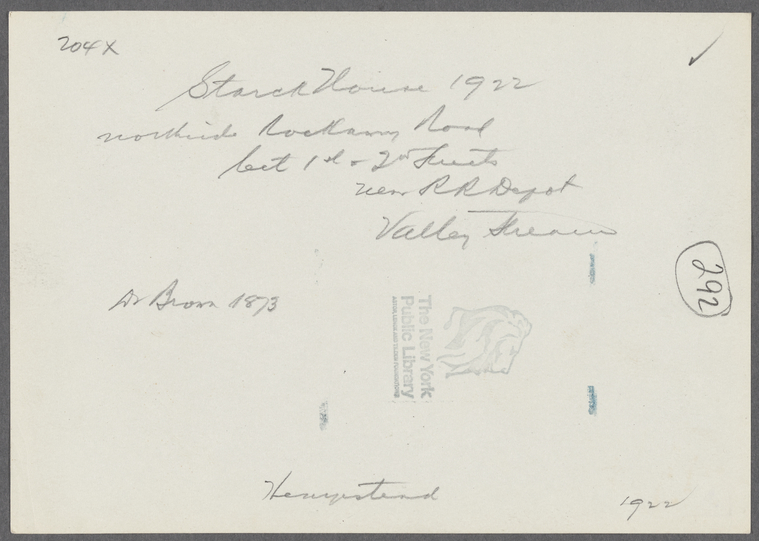 204X
Starck House 1922
northside Rockaway Road
bet 1st & 2nd Streets
near RR Depot
Valley Stream
292
Dr Brown 1873
The New York
Public Library
ASTOR, LENOX AND TILDEN FOUNDATIONS
Hempstead
1922